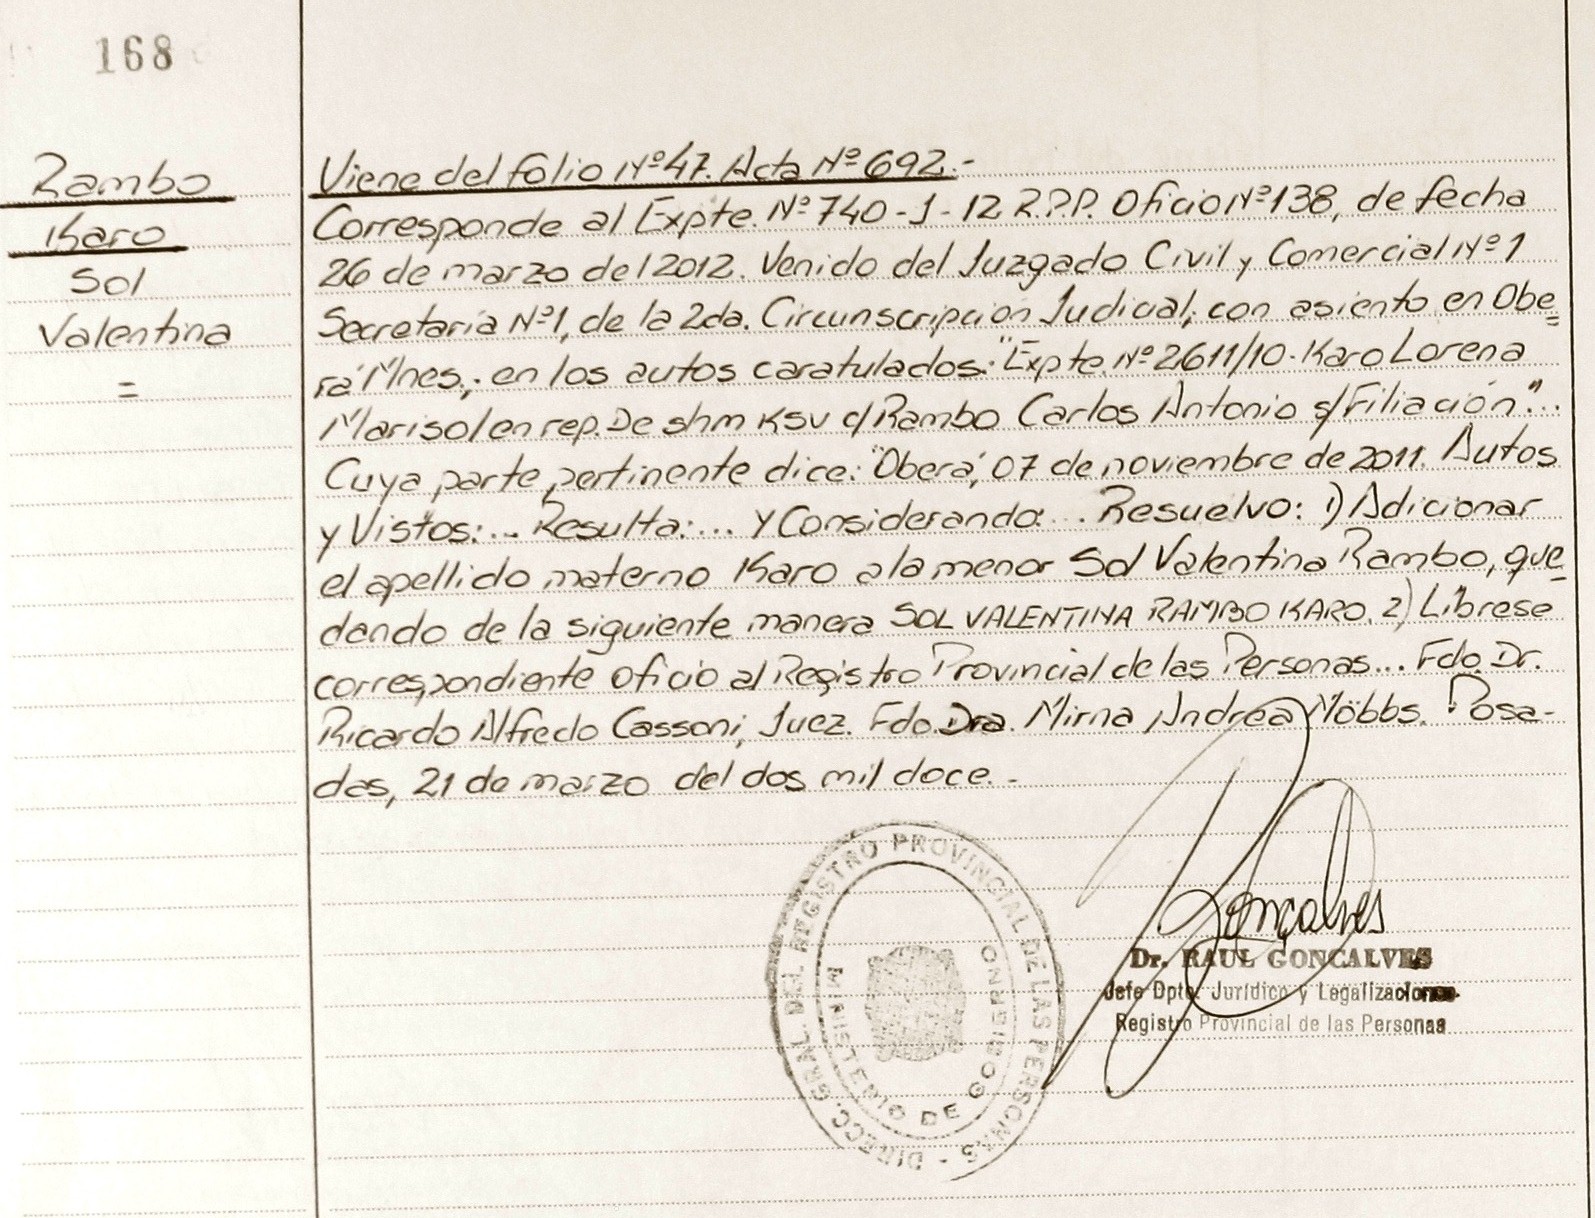 168
Rambo
Karo
Sol
Valentina
=
Viene del folio Nº47. Acta Nº692.-
Corresponde al Expte. Nº740-J-12 R.P.P. Oficio Nº138, de fecha
26 de marzo del 2012. Venido del Juzgado Civil y Comercial Nº1
Secretaría Nº1, de la 2da. Circunscripción Judicial; con asiento en Obe=
rá Mnes.; en los autos caratulados: "Expte. Nº2611/10-Karo Lorena
Marisol en rep. De shm KSV c/Rambo Carlos Antonio s/Filiación"...
Cuya parte pertinente dice: "Oberá, 07 de noviembre de 2011. Autos
y Vistos:... Resulta:... Y Considerando:... Resuelvo: 1) Adicionar
el apellido materno Karo a la menor Sol Valentina Rambo, que=
dando de la siguiente manera SOL VALENTINA RAMBO KARO. 2) Líbrese
correspondiente oficio al Registro Provincial de las Personas... Fdo. Dr.
Ricardo Alfredo Cassoni, Juez. Fdo. Dra. Mirna Andrea Möbbs. Posa-
das, 21 de marzo del dos mil doce.-
DIRECC. GRAL. DEL REGISTRO PROVINCIAL DE LAS PERSONAS -
MINISTERIO DE GOBIERNO
Gonçalves
Dr. RAUL GONCALVES
Jefe Dpto. Jurídico y Legalizaciones
Registro Provincial de las Personas